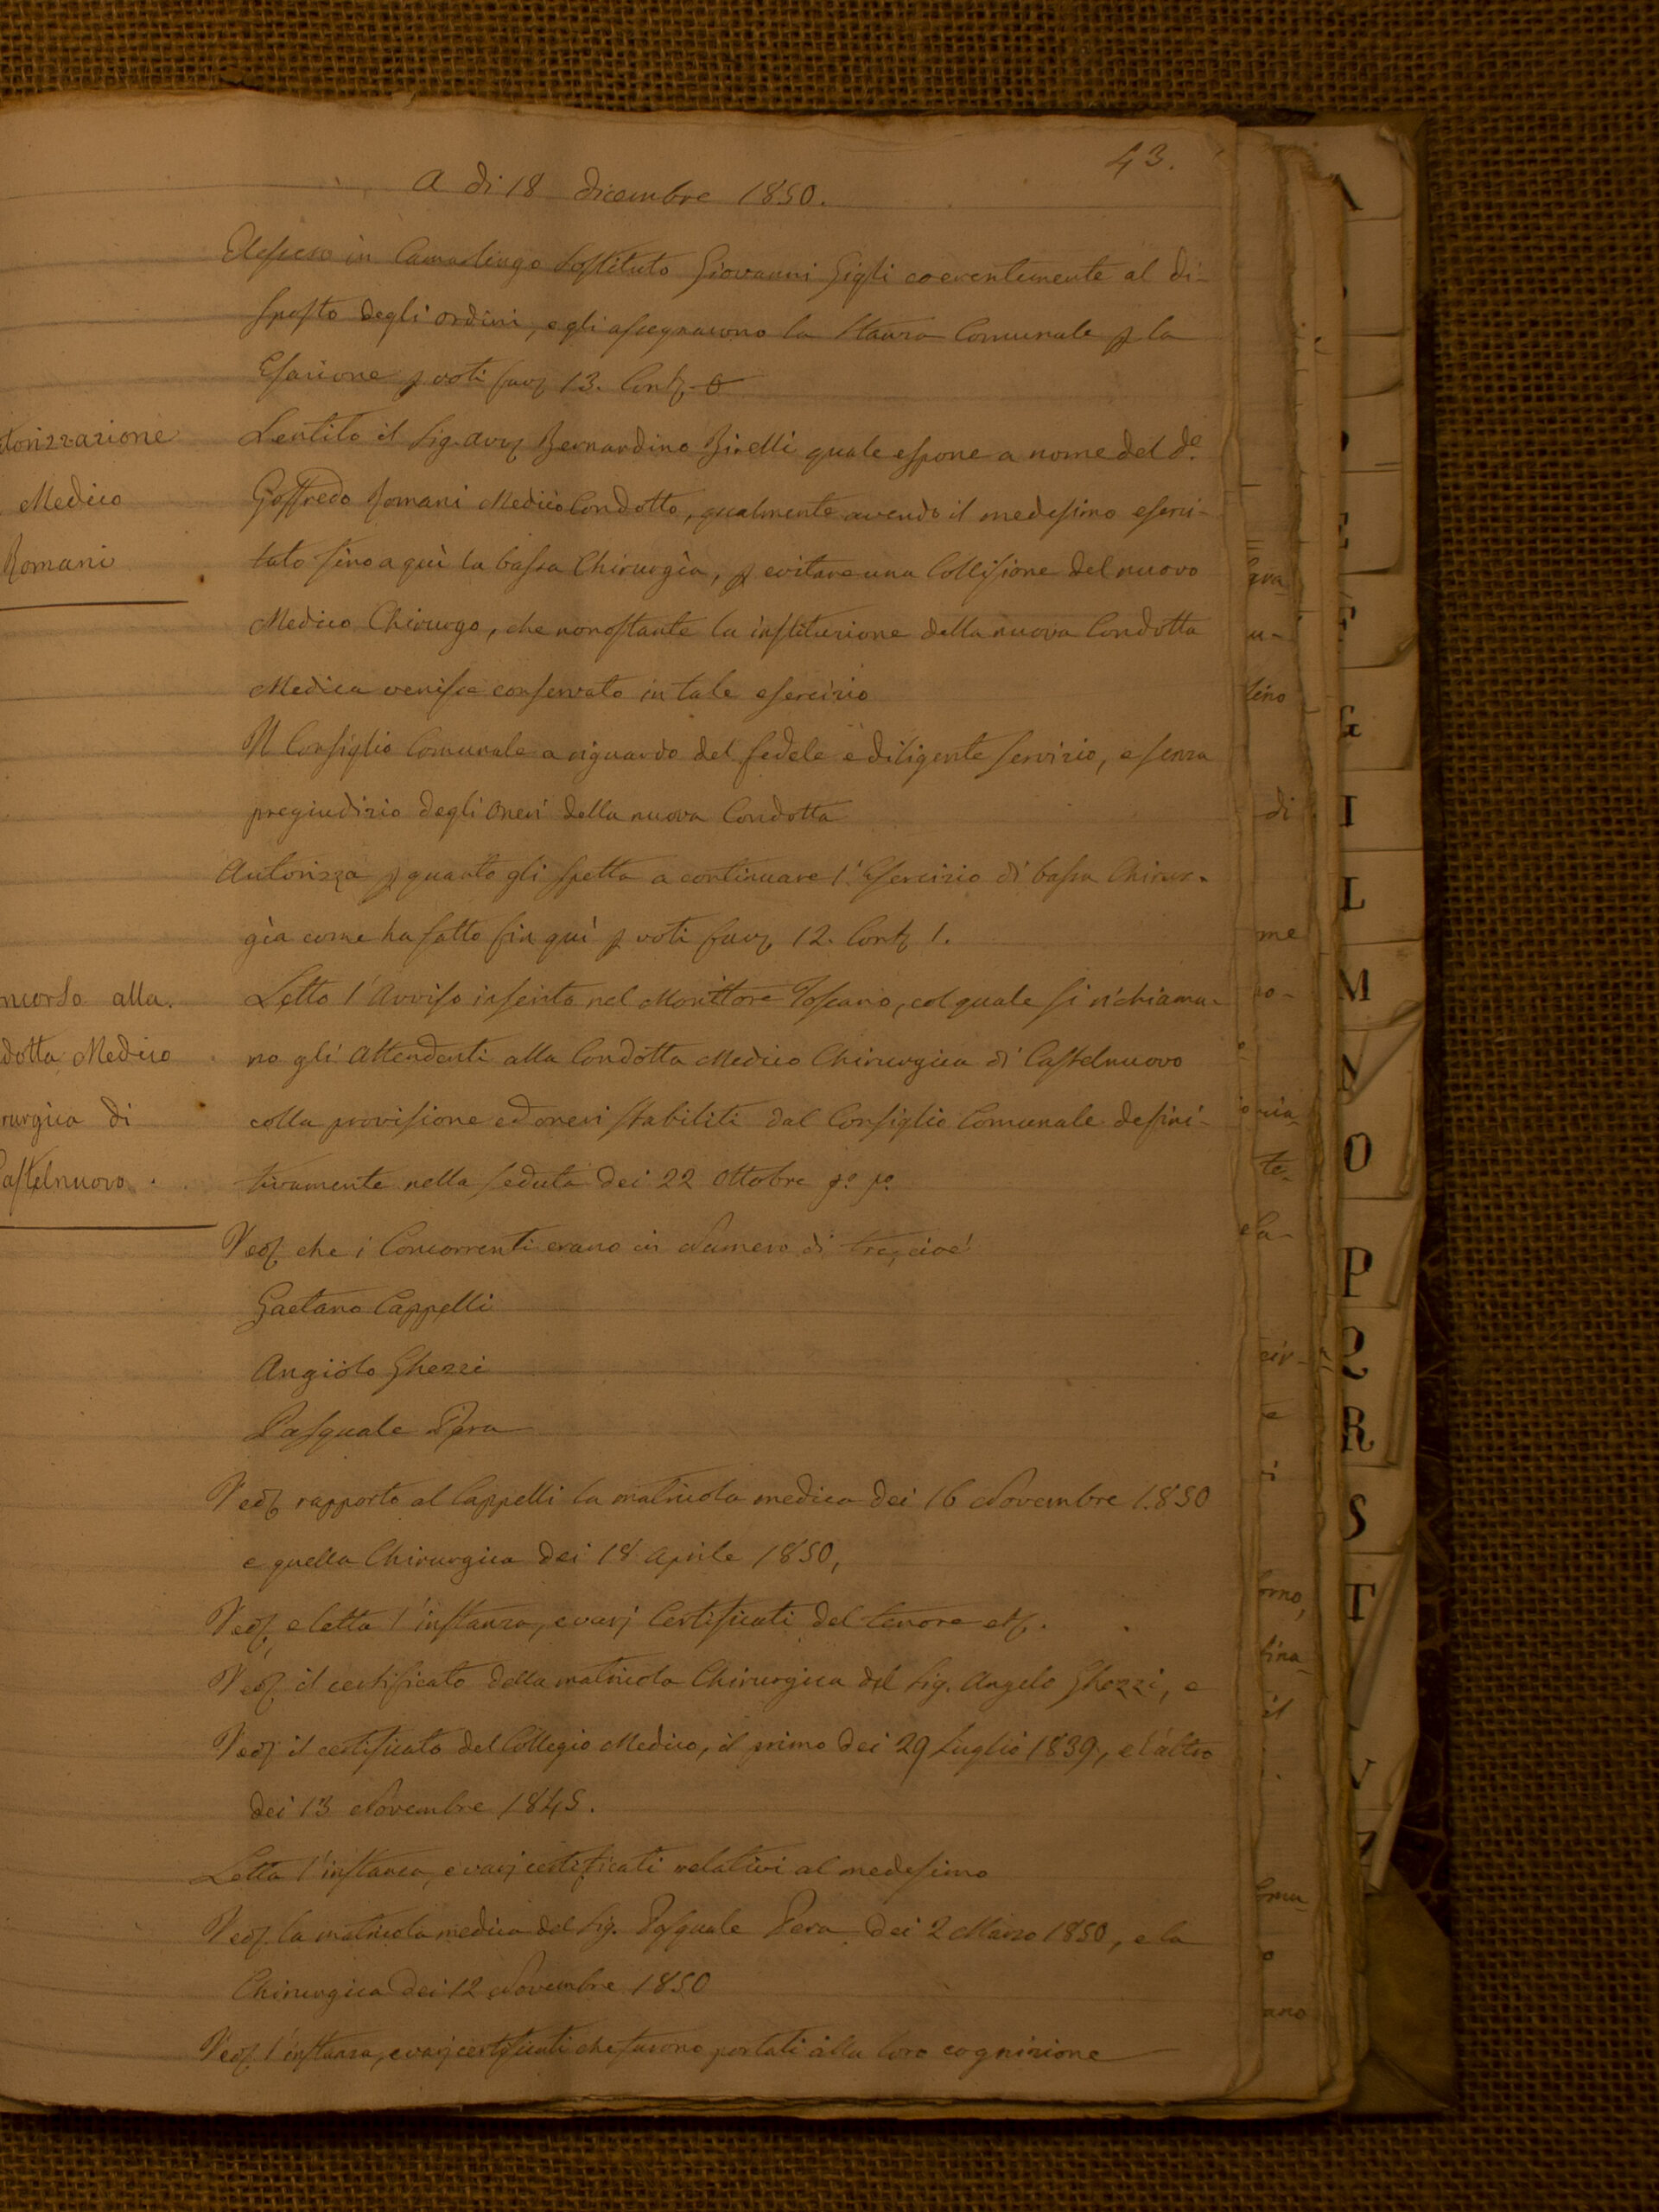 43.
A di 18 dicembre 1850.
Elessero in Camarlingo Sostituto Giovanni Gigli coerentemente al di-
sposto degli ordini, e gli assegnarono la Stanza Comunale p la
Esazione p voti fav. 13. Cont. 0
Sentito il Sig. Avv. Bernardino quale espone a nome del D.
Goffredo Romani Medico Condotto, qualmente avendo il medesimo eserci-
tato sino a quì la bassa Chirurgia, p evitare una Collisione del nuovo
Medico Chirurgo, che nonostante la instituzione della nuova Condotta
Medica venisse conservato in tale esercizio
Il Consiglio Comunale a riguardo del fedele e diligente servizio, e senza
pregiudizio degli Oneri della nuova Condotta
Autorizza p quanto gli spetta a continuare l'Esercizio di bassa Chirur-
gia come ha fatto fin quì p voti fav. 12. Cont. 1.
Letto l'Avviso inserito nel Monittore Toscano, col quale si richiama-
no gli Attendenti alla Condotta Medico Chirurgica di Castelnuovo
colla provisione ed oneri stabiliti dal Consiglio Comunale defini-
tivamente nella seduta dei 22 Ottobre p.º p.º
Ved. che i Concorrenti erano in Numero di tre, cioè
Gaetano Cappelli
Angiolo Ghezzi
Pasquale Pera
Ved. rapporto al Cappelli la matricola medica dei 16 Novembre 1850
e quella Chirurgica dei 18 Aprile 1850,
Ved. e letta l'instanza, e varj Certificati del tenore
Ved. il certificato della matricola Chirurgica del Sig. Angelo Ghezzi, e
Ved. il certificato del Collegio Medico, il primo dei 29 Luglio 1839, e l'altro
dei 13 Novembre 1845.
Letta l'instanza, e varj certificati relativi al medesimo
Ved. la matricola medica del Sig. Pasquale Pera dei 2 Marzo 1850, e la
Chirurgica dei 12 Novembre 1850
Ved. l'instanza, e varj certificati che furono portati alla loro cognizione
torizzazione
Medico
Romani
ncorso alla
dotta Medico
rurgica di
Castelnuovo
di
me
te-
il
E
F
G
I
L
M
N
O
P
Q
R
S
T
V
Z